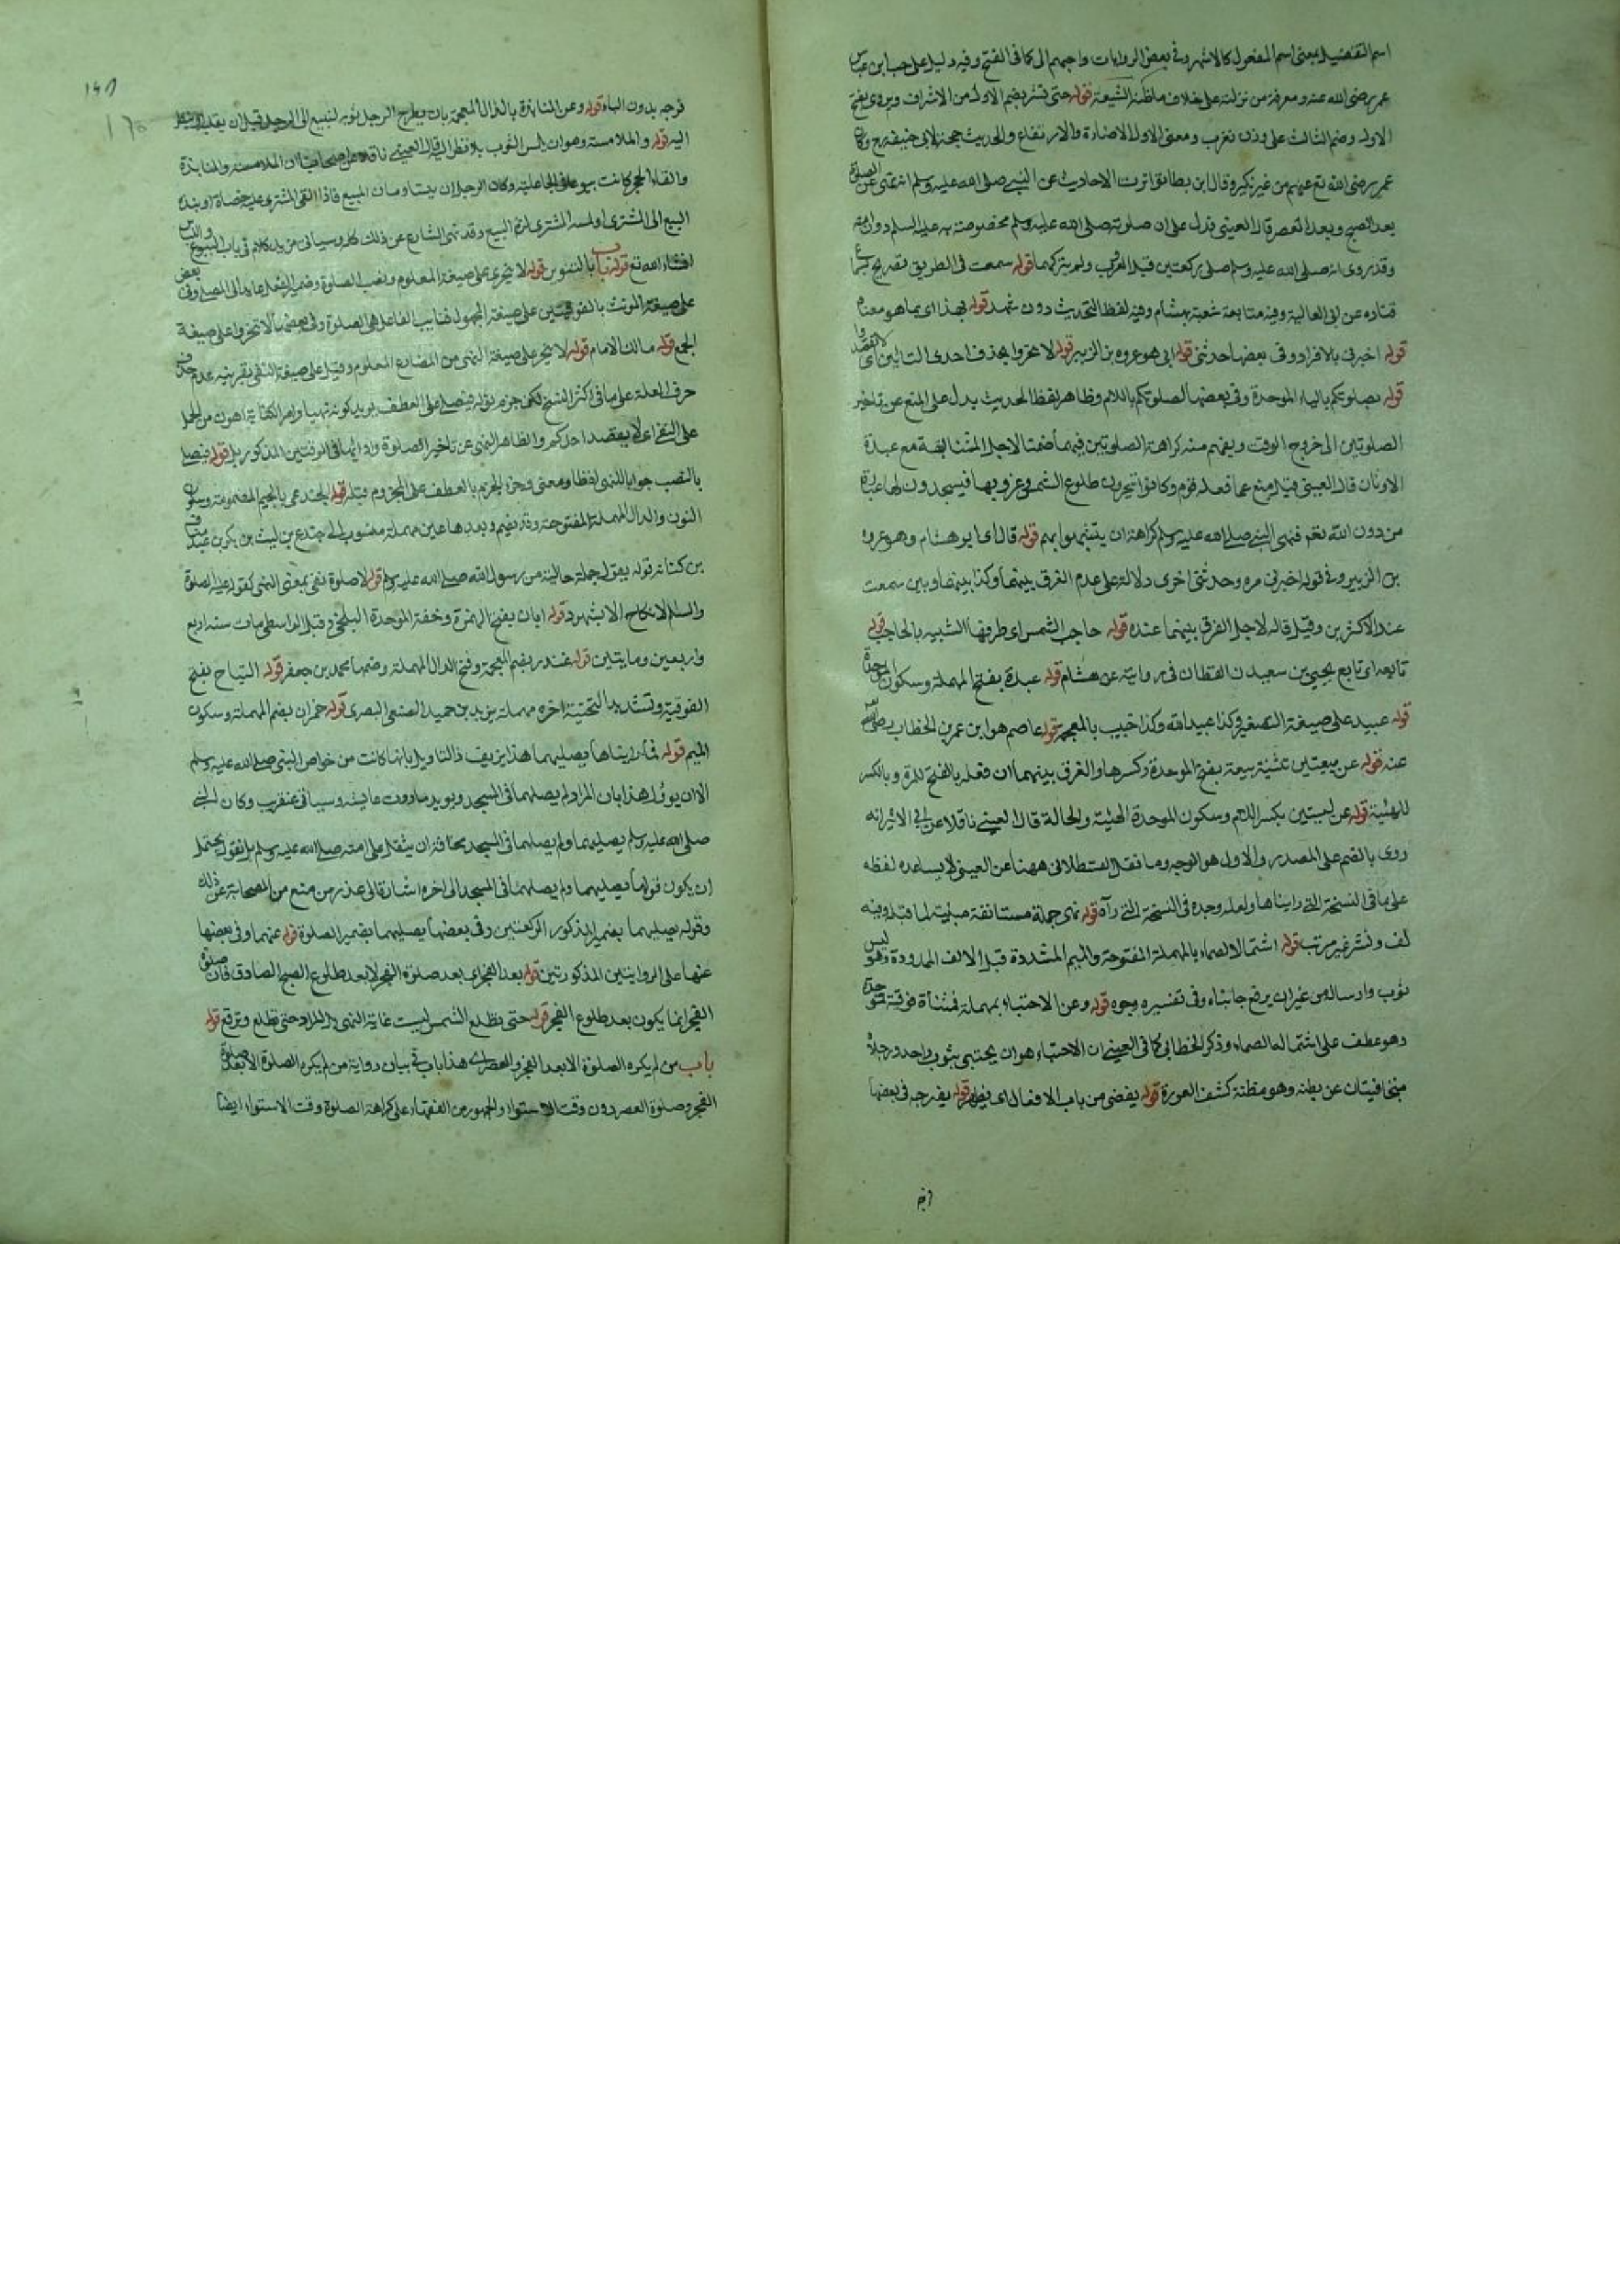 اسم التفضيل بمعنى اسم المفعول كالاشهر وفي بعض الروايات واجبهم الى كما في الفتح وفيه دليل على حب ابن عباس
عمر رضى الله عنه ومعرفة من نزلته على خلاف ماظنه الشيعة قوله حتى تشرق بضم الاول من الاشراق ويروى بفتح
الاول وضم الثالث على وزن تغرب ومعنى الاول الاضاءة والارتفاع والحديث حجة لابي حنيفة رح وكان
عمر رضى الله تع عنه من غير نكير وقال ابن بطال تواترت الاحاديث عن النبي صلى الله عليه وسلم انه نهى عن الصلوة
بعد الصبح وبعد العصر قال العيني فدل على ان صلوته صلى الله عليه وسلم مخصوصة به عليه السلم دون امته
وقد روى انه صلى الله عليه وسلم صلى ركعتين قبل المغرب ولم يتركهما قوله سمعت في الطريق تصريح بسماع
قتاده عن ابي العالية وفيه متابعة شعبة بهشام وفيه لفظ التحديث دون قوله بهذا اى بما هو معناه
قوله اخبرني بالافراد وفي بعضها حدثني قوله ابي هو عروه بن الزبير قوله لا تحروا بحذف احدى التائين اى لا تقصدوا
قوله بصلوتكم بالباء الموحدة وفي بعضها لصلوتكم باللام وظاهر لفظ الحديث يدل على المنع عن تاخير
الصلوتين الى خروج الوقت ويفهم منه كراهة الصلوتين فيهما ضمنا لاجل المشابهة مع عبدة
الاوثان قال العيني قيل منع عما فعله قوم وكانوا يتحرون طلوع الشمس وغروبها فيسجدون لها عبادة
من دون الله تع فنهى النبي صلى الله عليه وسلم كراهة ان يتشبهوا بهم قوله قال اى ابو هشام وهو عروه
بن الزبير وفي قوله اخبرني مره وحدثني اخرى دلالة على عدم الفرق بينهما وكذا بينهما وبين سمعت
عند الاكثرين وقيل قاله لاجل الفرق بينهما عنده قوله حاجب الشمس اى طرفها الشبيه بالحاجب قوله
تابعه اى تابع يحيى بن سعيد ن القطان في روايته عن هشام قوله عبدة بفتح المهملة وسكون الموحدة
قوله عبيد على صيغة التصغير وكذا عبيد الله وكذا خبيب بالمعجمة قوله عاصم هو ابن عمر بن الخطاب رضى الله
عنه قوله عن بيعتين تثنية بيعة بفتح الموحدة وكسرها والفرق بينهما ان فعله بالفتح للمرة وبالكسر
للهيئة قوله عن لبستين بكسر اللام وسكون الموحدة الهيئة والحالة قال العيني ناقلا عن ابن الاثير انه
روى بالضم على المصدر والاول هو الوجه وما نقل القسطلاني ههنا عن العيني لا يساعده لفظه
على ما في النسخة التي رايناها ولعله وجده في النسخة التي رآه قوله نهى جملة مستانفة مبينة لما قبله وفيه
لف ونشر غير مرتب قوله اشتمال الصماء بالمهملة المفتوحة والميم المشددة قبل الالف الممدودة وهو لبس
ثوب وارساله من غير ان يرفع جانبه وفي تفسيره وجوه قوله وعن الاحتباء بمهملة فمثناة فوقية فموحدة
وهو عطف على اشتمال الصماء وذكر الخطابي كما في العيني ان الاحتباء هو ان يحتبي بثوب واحد ورجلاه
متجافيتان عن بطنه وهو مظنة كشف العورة قوله يفضي من باب الافعال اى يظهر قوله بفرجه في بعضها
فرجه بدون الباء قوله وعن المنابذة بالذال المعجمة بان يطرح الرجل ثوبه لبيع الى الرجل قبل ان يقلبه او ينظر
اليه قوله والملامسة وهو ان يلمس الثوب بلا نظر اليه قال العيني ناقلا عن اصحابنا ان الملامسة والمنابذة
والقاء الحجر كانت بيوعا في الجاهلية وكان الرجلان يتساومان المبيع فاذا القى المشترى عليه حصاة او نبذه
البيع الى المشترى او لمسه المشترى لزم البيع وقد نهى الشارع عن ذلك كله وسياتي مزيد كلام في باب البيوع
انشاء الله تع قوله باب بالتنوين قوله لا يتحرى على صيغة المعلوم ونصب الصلوة وضمير الفعل عايد الى المصلى وفي بعض
على صيغة المونث بالفوقيتين على صيغة المجهول فنايب الفاعل هي الصلوة وفي بعضها لا تتحروا على صيغة
الجمع قوله مالك الامام قوله لا يتحر على صيغة النهى من المضارع المعلوم وقيل على صيغة النفى بقرينة عدم حذف
حرف العلة على ما في اكثر النسخ لكن جزم بقوله فيصلى على العطف يريد كونه نهيا وامر الكتابة اهون من الحمل
على النفى اى لا يقصد احدكم والظاهر النهى عن تاخير الصلوة وادائها في الوقتين المذكورين قوله فيصلى
بالنصب جوابا للنهى لفظا ومعنى وجوز الجزم بالعطف على المجزوم قبله قوله الجندعى بالجيم المضمومة وسكون
النون والدال المهملة المفتوحة وقد يضم وبعدها عين مهملة منسوب الى جندع بن ليث بن بكر بن عبد مناف
بن كنانه قوله يقول جملة حالية من رسول الله صلى الله عليه وسلم قوله لا صلوة نفى بمعنى النهى كقوله عليه الصلوة
والسلم لا نكاح الا بشهود قوله ابان بفتح الهمزة وخفة الموحدة البلخي وقيل الواسطي مات سنه اربع
واربعين ومايتين قوله غندر بضم المعجمة وفتح الدال المهملة وضمها محمد بن جعفر قوله التياح بفتح
الفوقية وتشديد التحتية اخره مهملة يزيد بن حميد الضبعي البصري قوله حمران بضم المهملة وسكون
الميم قوله فما رايناه يصليهما هذا يزيف ذا التاويل بانها كانت من خواص النبي صلى الله عليه وسلم
الا ان يوول هذا بان المراد لم يصلهما في المسجد ويويده ما روت عايشه وسياتي عنقريب وكان النبي
صلى الله عليه وسلم يصليهما ولم يصلهما في المسجد مخافة ان يثقل على امته صلى الله عليه وسلم بل نقول يحتمل
ان يكون قولها يصليهما ولم يصلهما في المسجد الى اخره اشارة الى عذر من منع من الصحابة عن ذلك
وقوله يصليهما بضمير المذكور الركعتين وفي بعضها يصليها بضمير الصلوة قوله عنهما وفي بعضها
عنها على الروايتين المذكورتين قوله بعد الفجر اى بعد صلوة الفجر لا بعد طلوع الصبح الصادق فان صلوة
الفجر انما يكون بعد طلوع الفجر قوله حتى تطلع الشمس ليست غاية النهى بل المراد حتى تطلع وترتفع قوله
باب من لم يكره الصلوة الا بعد الفجر والعصر اى هذا باب في بيان رواية من لم يكره الصلوة الا بعد صلوة
الفجر وصلوة العصر دون وقت الاستواء والجمهور من الفقهاء على كراهة الصلوة وقت الاستواء ايضا